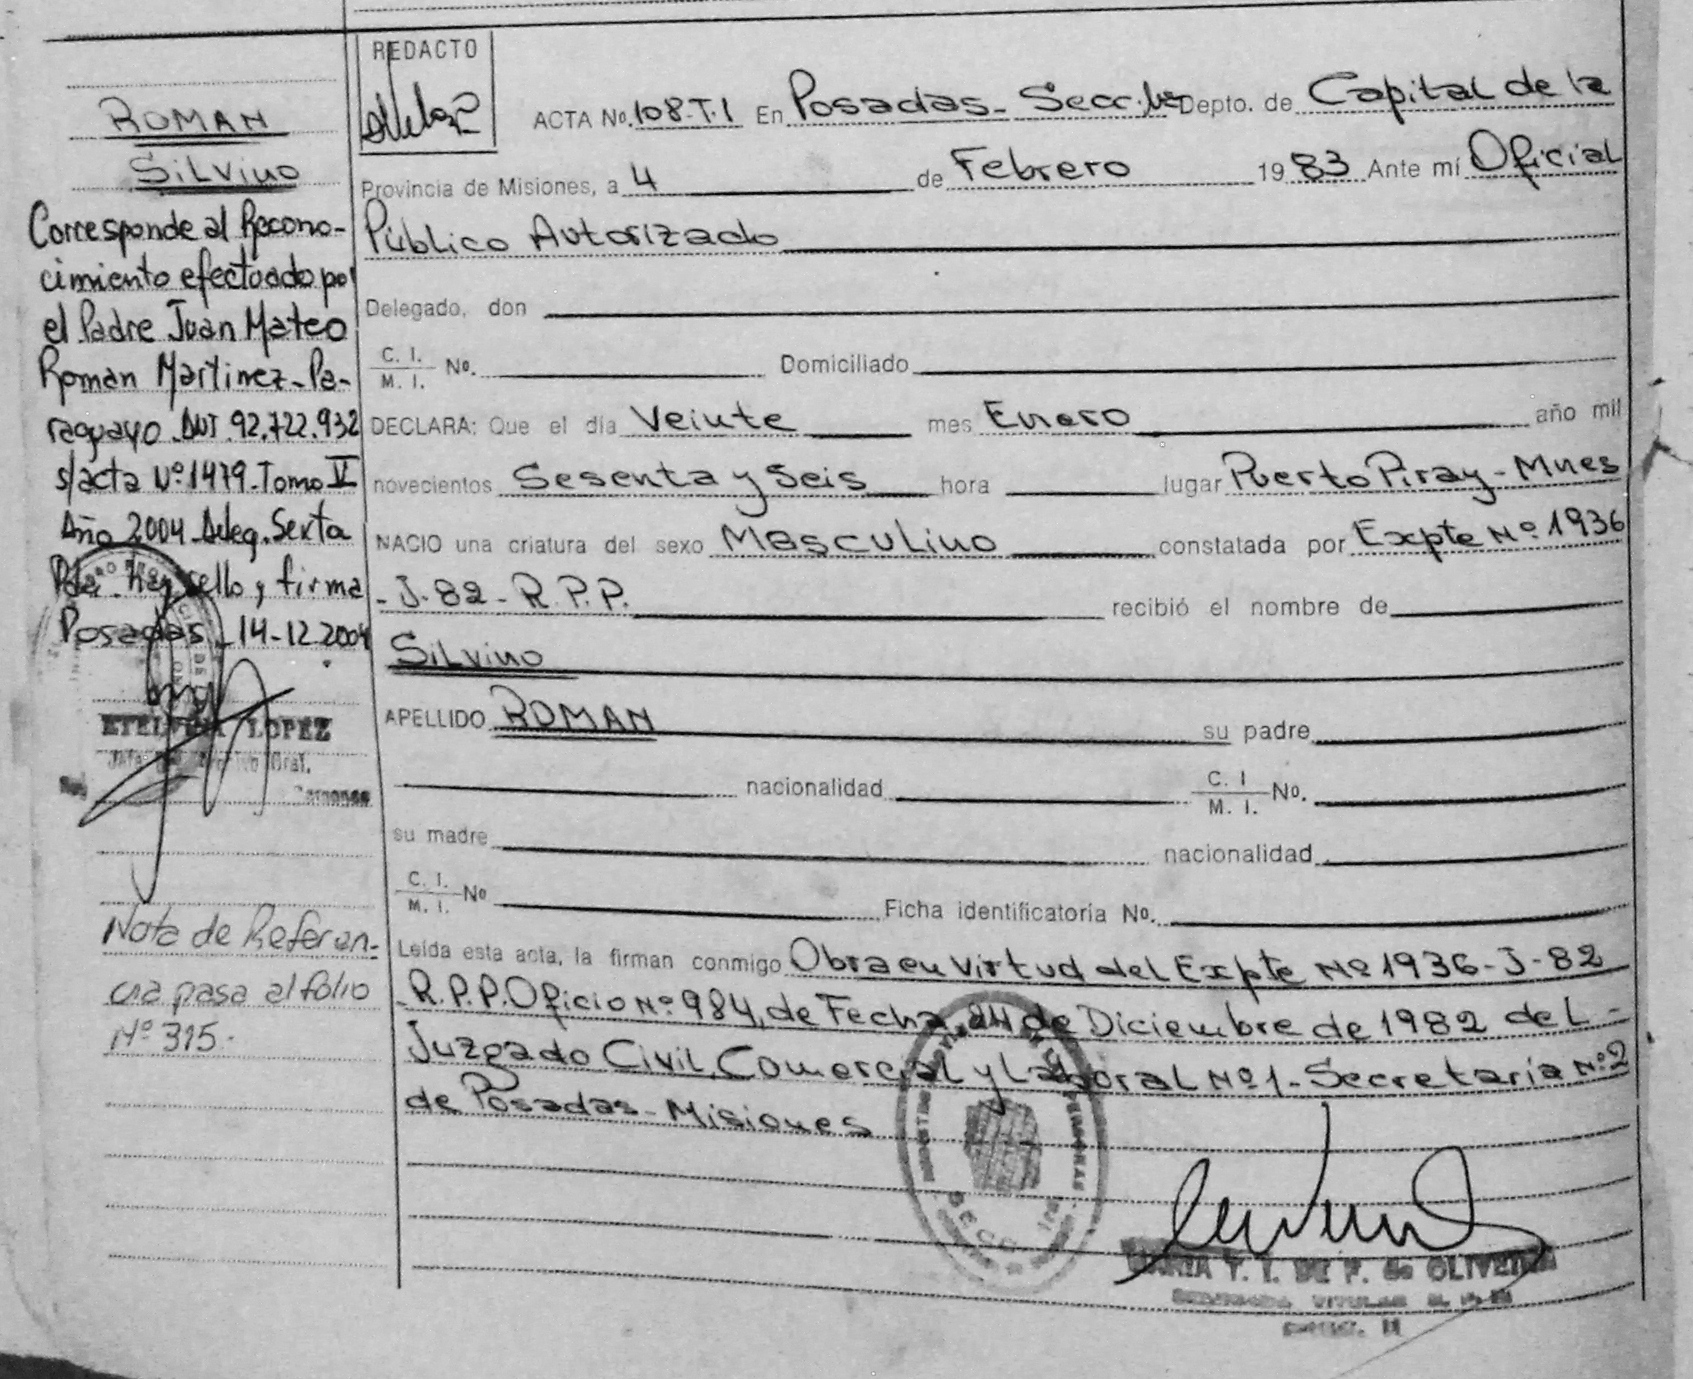 ROMAN
Silvino
Corresponde al Recono-
cimiento efectuado por
el Padre Juan Mateo
Roman Martinez - Pa-
raguayo - DNI 92.722.932
s/acta Nº 1479 - Tomo V
Año 2004 - Deleg. Sexta
Pdas. Hay sello y firma
Posadas 14-12-2004
LOPEZ
Nota de Referen-
cia pasa al folio
Nº 315.
REDACTO
ACTA No. 108-T.I En Posadas - Secc. Depto. de Capital de la
Provincia de Misiones, a 4 de Febrero 1983 Ante mí Oficial
Público Autorizado
Delegado, don
C. I.
M. I. No. Domiciliado
DECLARA: Que el día Veinte mes Enero año mil
novecientos Sesenta y Seis hora lugar Puerto Piray - Mnes
NACIO una criatura del sexo Masculino constatada por Expte Nº 1936
- J-82 - R.P.P. recibió el nombre de
Silvino
APELLIDO ROMAN su padre
nacionalidad C. I M. I. No.
su madre nacionalidad
C. I. M. I. No Ficha identificatoria No.
Leída esta acta, la firman conmigo Obra en Virtud del Expte Nº 1936-J-82
- R.P.P. Oficio Nº 984, de Fecha, 24 de Diciembre de 1982 del -
Juzgado Civil, Comercial y Laboral Nº 1 - Secretaria Nº 2
de Posadas - Misiones
MARIA T. I. DE P. de OLIVEIRA